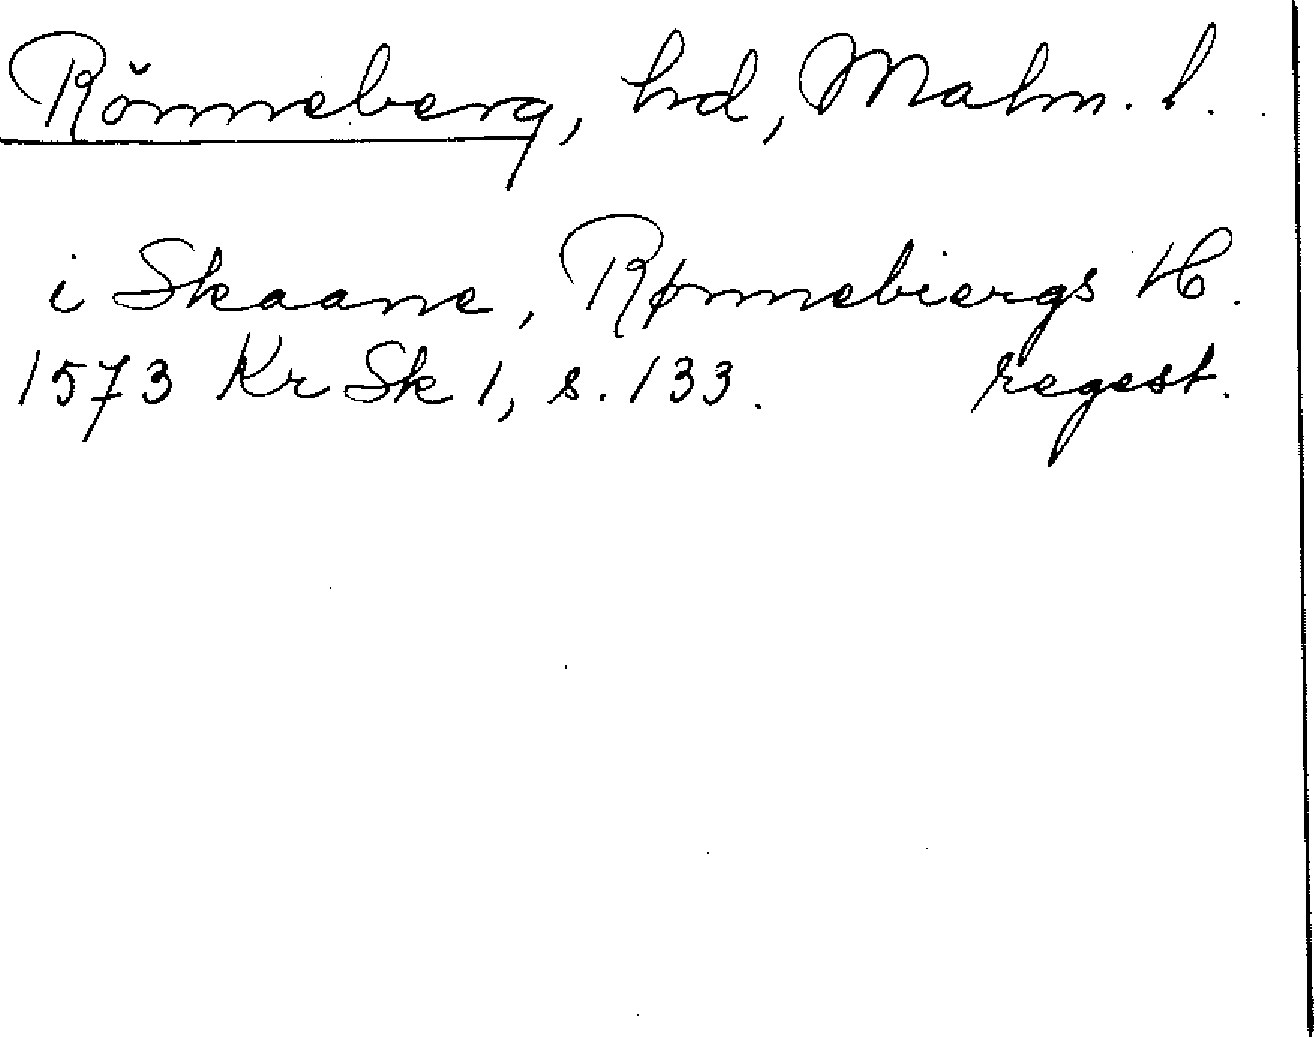 Rönneberg, hd, Malm. l.
i Skaane, Rønnebiergs H.
1573 Kr Sk 1, s. 133. regest.